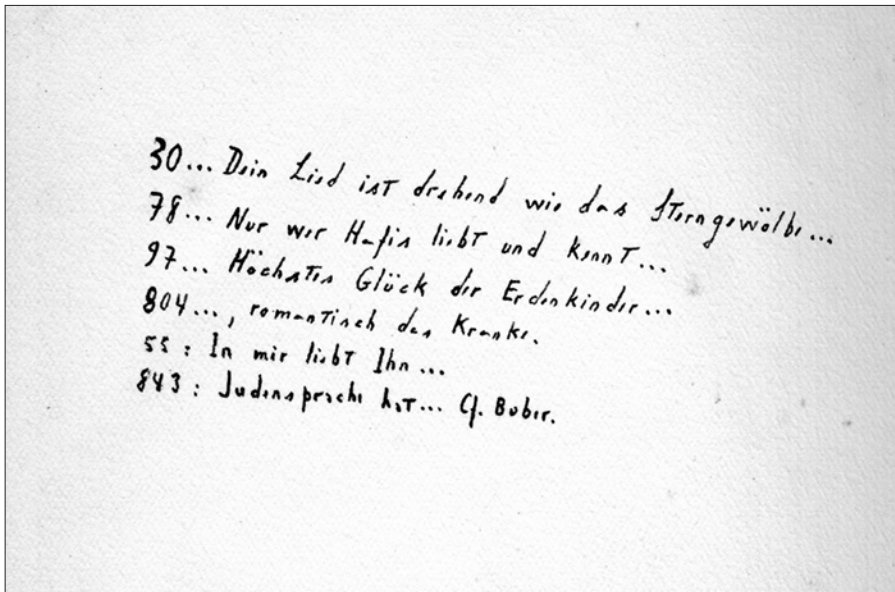 30... Dein Lied ist drehend wie das Sterngewölbe...
78... Nur wer Hafis liebt und kennt...
97... Höchstes Glück der Erdenkinder...
804..., romantisch das Kranke.
55: In mir liebt Ihn...
843: Judensprache hat... Cf. Buber.